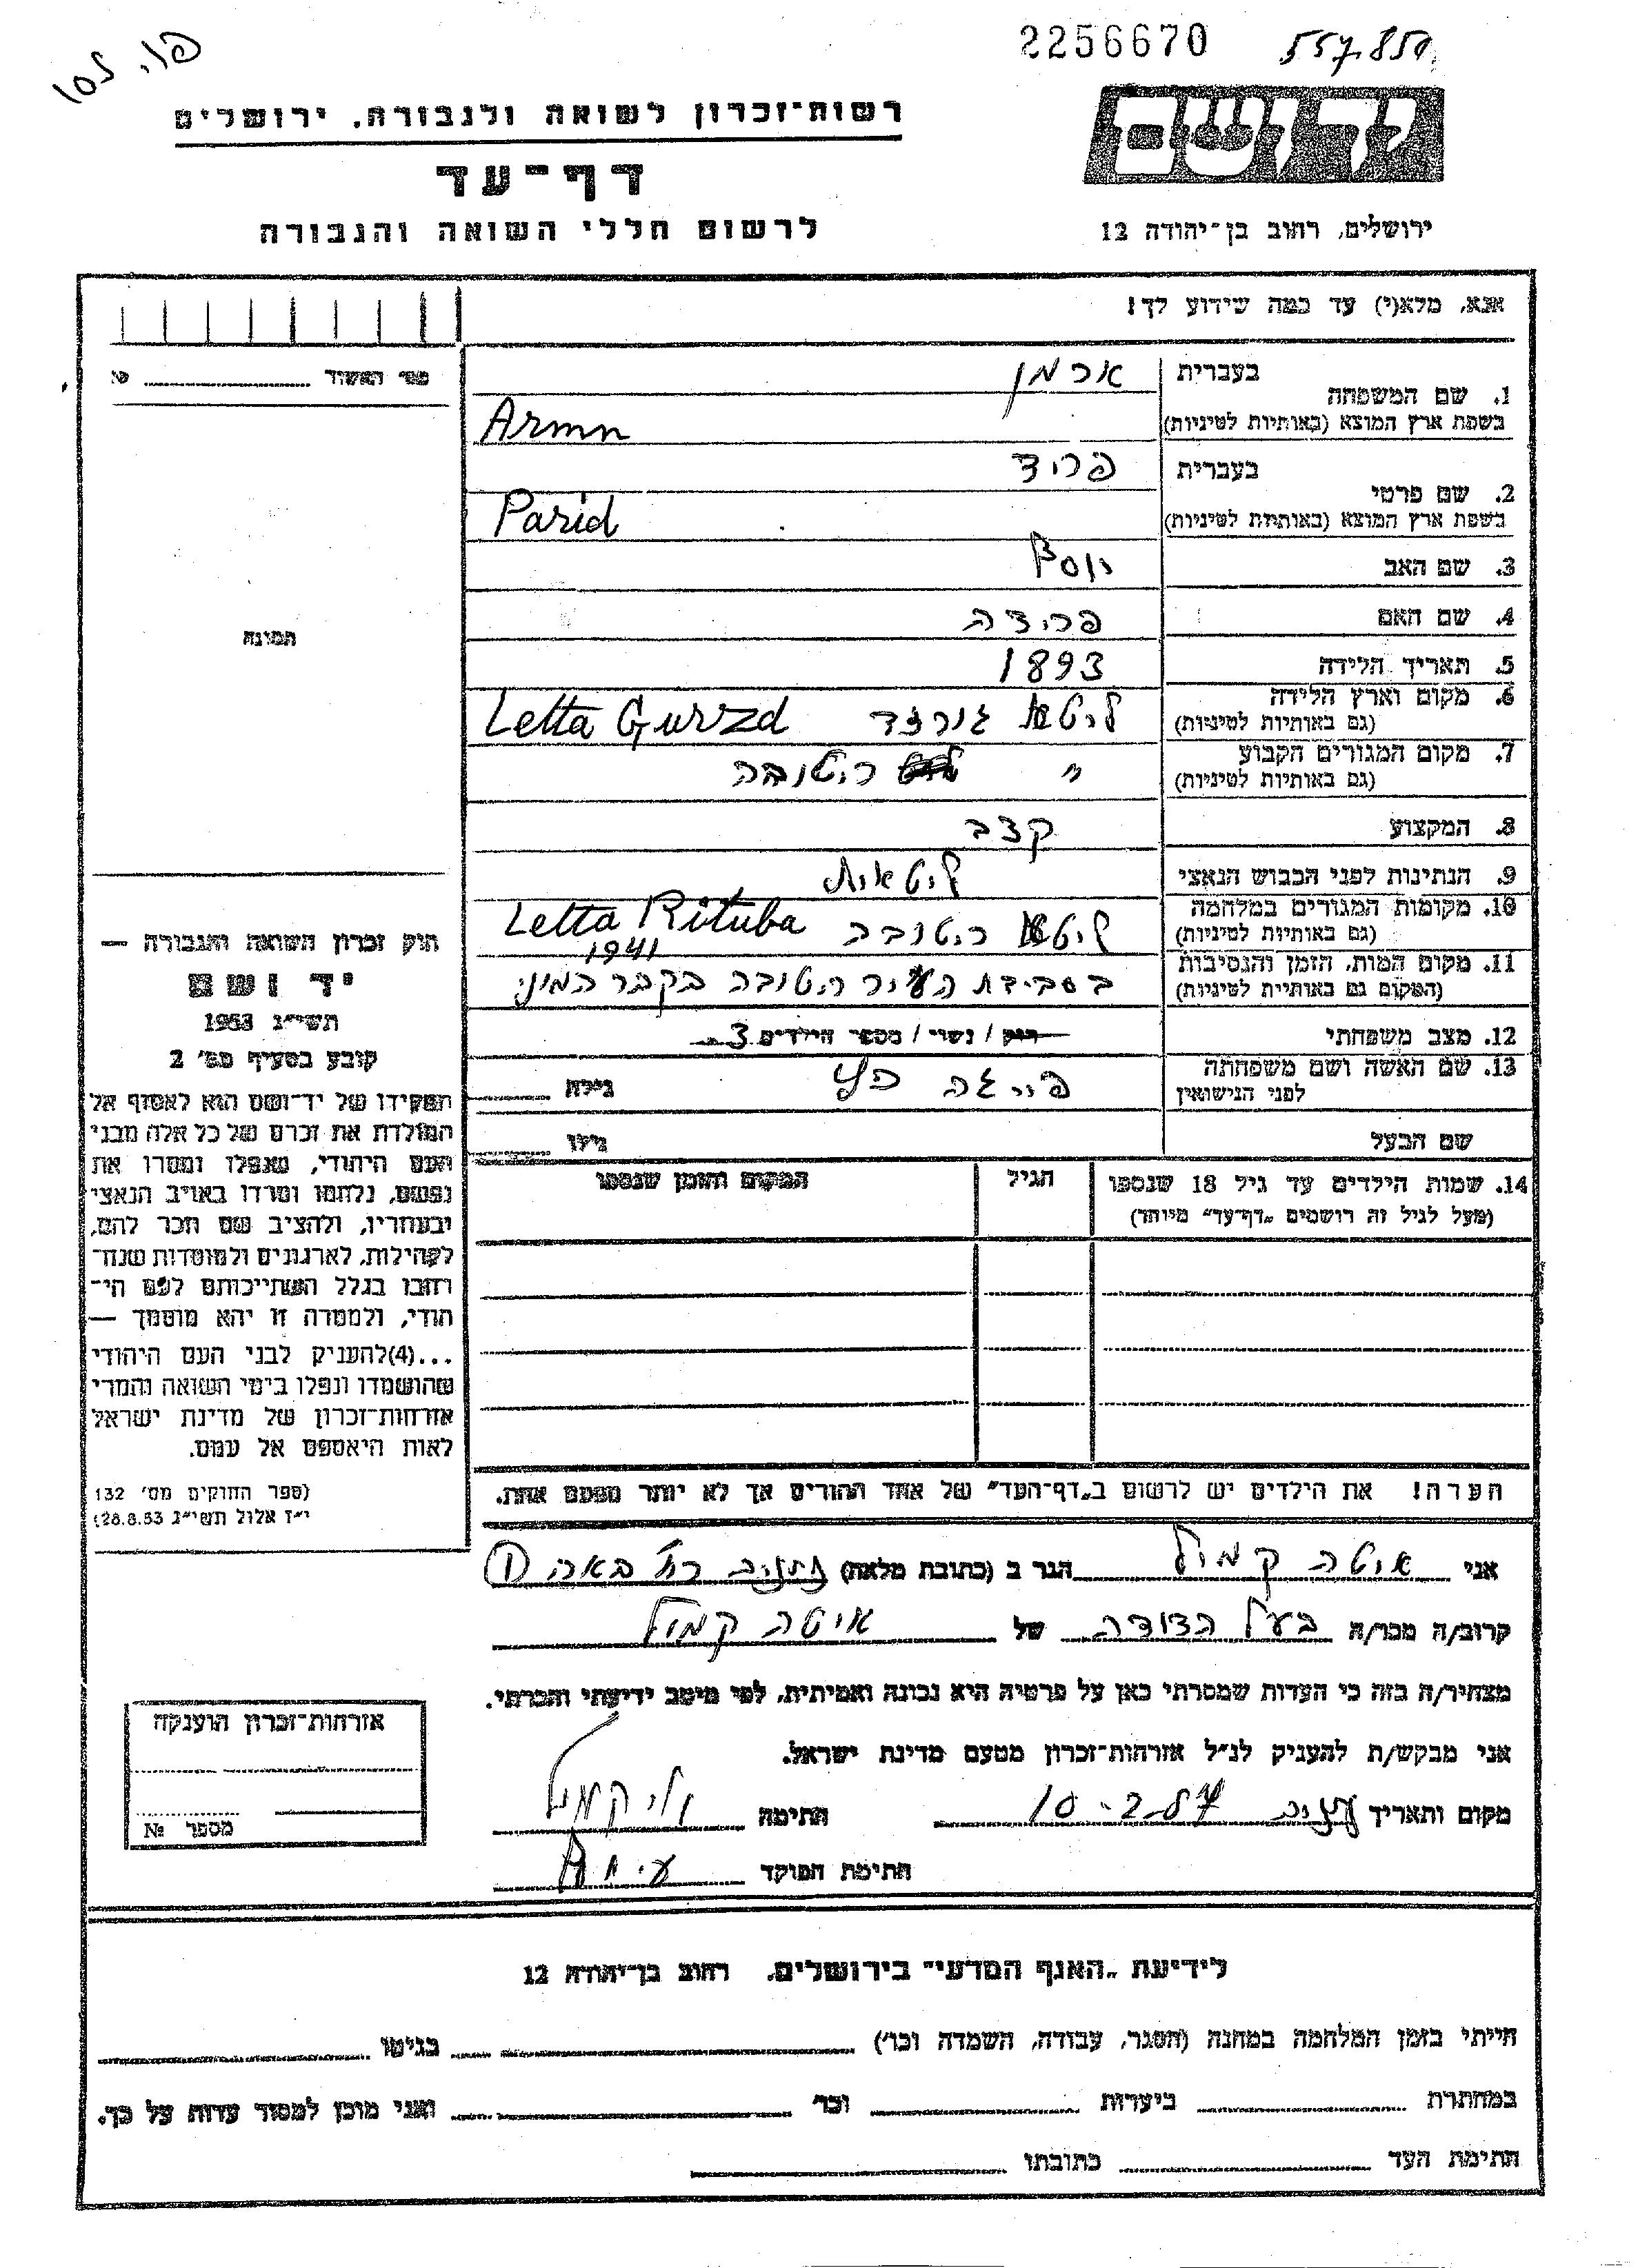 2256670 557.850
רשות־זכרון לשואה ולגבורה, ירושלים
דף־עד
לרשום חללי השואה והגבורה
ירושלים, רחוב בן־יהודה 12
אנא, מלא(י) עד כמה שידוע לך!
מס׳ האשוד №
1. שם המשפחה
בעברית ארמן
בשפת ארץ המוצא (באותיות לטיניות) Armn
2. שם פרטי
בעברית פריד
בשפת ארץ המוצא (באותיות לטיניות) Parid
3. שם האב יוסף
4. שם האם פרידה
5. תאריך הלידה 1893
6. מקום וארץ הלידה
(גם באותיות לטיניות) ליטא גורצד Letta Gurzd
7. מקום המגורים הקבוע
(גם באותיות לטיניות) " ריטובה
8. המקצוע קצב
9. הנתינות לפני הכבוש הנאצי ליטאית
10. מקומות המגורים במלחמה
(גם באותיות לטיניות) ליטא ריטובה Letta Rituba
11. מקום המות, הזמן והנסיבות
1941
(המקום גם באותיות לטיניות) בסבידת העיר ריטובה בקבר המוני
12. מצב משפחתי רווק / נשוי / מספר הילדים 3
13. שם האשה ושם משפחתה
לפני הנישואין פייגה כץ גילה
שם הבעל גילו
14. שמות הילדים עד גיל 18 שנספו
(מעל לגיל זה רושמים „דף־עד" מיוחד)
הגיל
המקום והזמן שנספו
הערה! את הילדים יש לרשום ב„דף־העד" של אחד ההורים אך לא יותר מפעם אחת.
תמונה
חוק זכרון השואה והגבורה —
יד ושם
תשי״ג 1953
קובע בסעיף מס׳ 2
תפקידו של יד־ושם הוא לאסוף אל
המולדת את זכרם של כל אלה מבני
העם היהודי, שנפלו ומסרו את
נפשם, נלחמו ומרדו באויב הנאצי
ובעוזריו, ולהציב שם וזכר להם,
לקהילות, לארגונים ולמוסדות שנח־
רבו בגלל השתייכותם לעם הי־
הודי, ולמטרה זו יהא מוסמך —
...(4)להעניק לבני העם היהודי
שהושמדו ונפלו בימי השואה והמרי
אזרחות־זכרון של מדינת ישראל
לאות היאספם אל עמם.
(ספר החוקים מס׳ 132
י״ז אלול תשי״ג 28.8.53)
אני איטה קמול הגר ב (כתובת מלאה) נתניה רח׳ בארה 1
קרוב/ה מכר/ה בעל הדודה של איטה קמול
מצהיר/ה בזה כי העדות שמסרתי כאן על פרטיה היא נכונה ואמיתית, לפי מיטב ידיעתי והכרתי.
אני מבקש/ת להעניק לנ״ל אזרחות־זכרון מטעם מדינת ישראל.
מקום ותאריך 10-2-57 חתימה
חתימת הפוקד
אזרחות־זכרון הוענקה
מספר №
לידיעת „האגף המדעי" בירושלים, רחוב בן־יהודה 12
הייתי בזמן המלחמה במחנה (הסגר, עבודה, השמדה וכו׳) בגיטו
במחתרת ביערות וכו׳ ואני מוכן למסור עדות על כך.
חתימת העד כתובתו